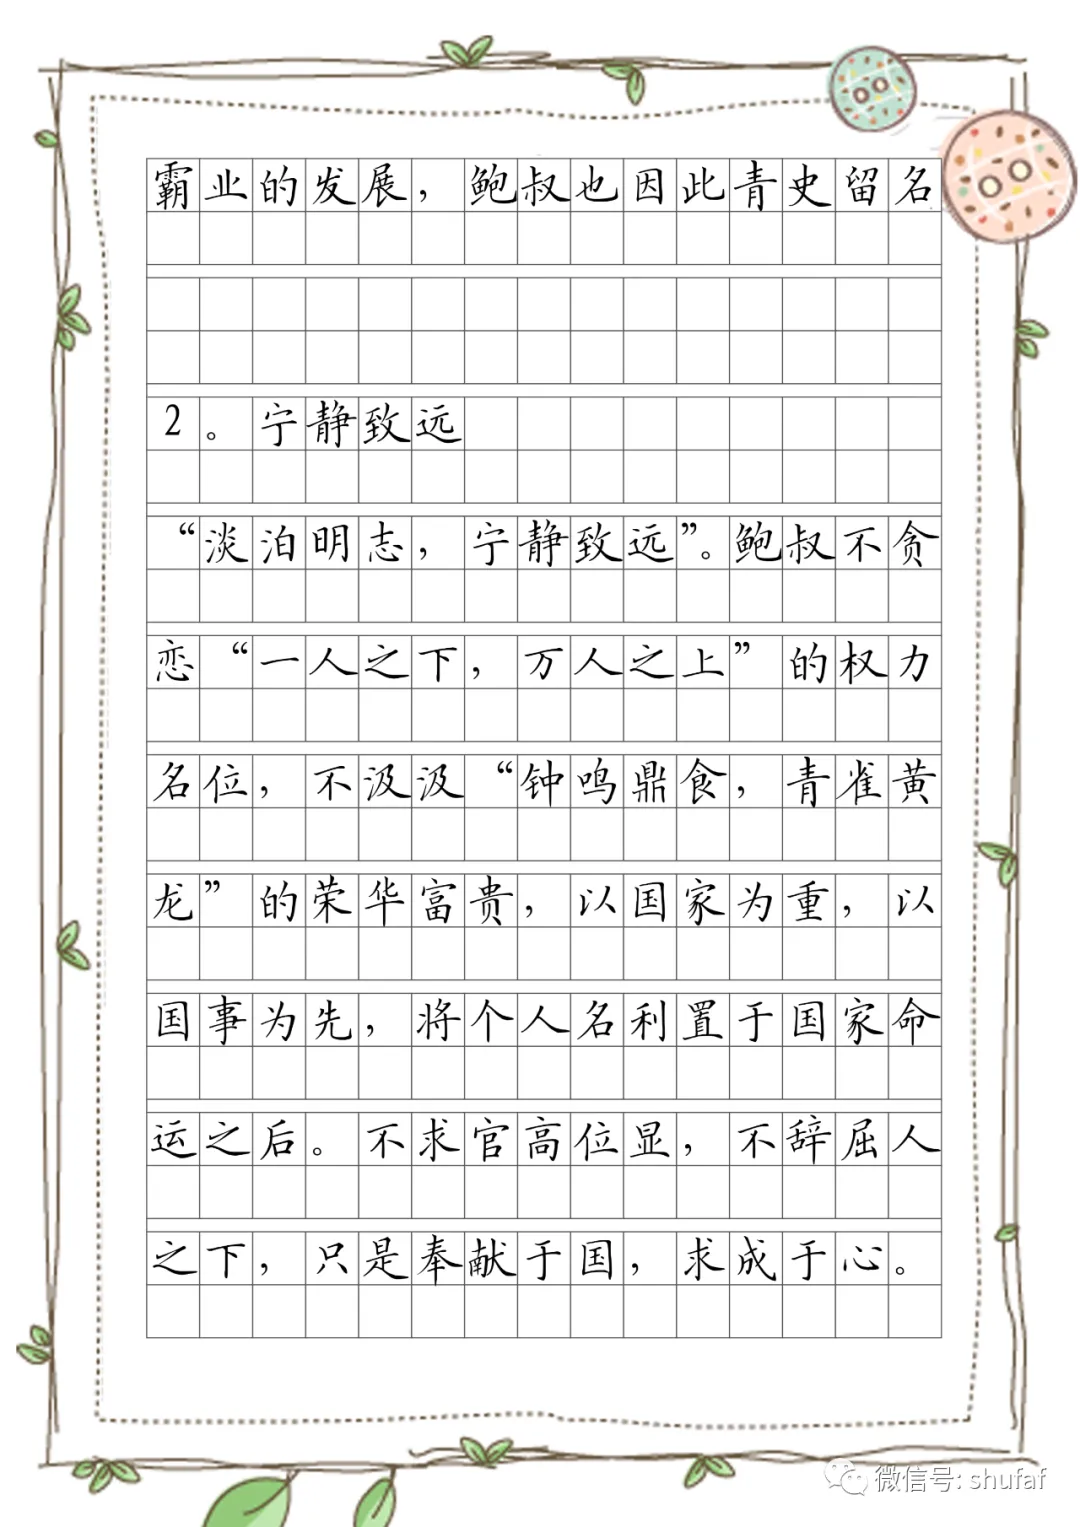 霸业的发展，鲍叔也因此青史留名
2。宁静致远
“淡泊明志，宁静致远”。鲍叔不贪
恋“一人之下，万人之上”的权力
名位，不汲汲“钟鸣鼎食，青雀黄
龙”的荣华富贵，以国家为重，以
国事为先，将个人名利置于国家命
运之后。不求官高位显，不辞屈人
之下，只是奉献于国，求成于心。
微信号: shufaf